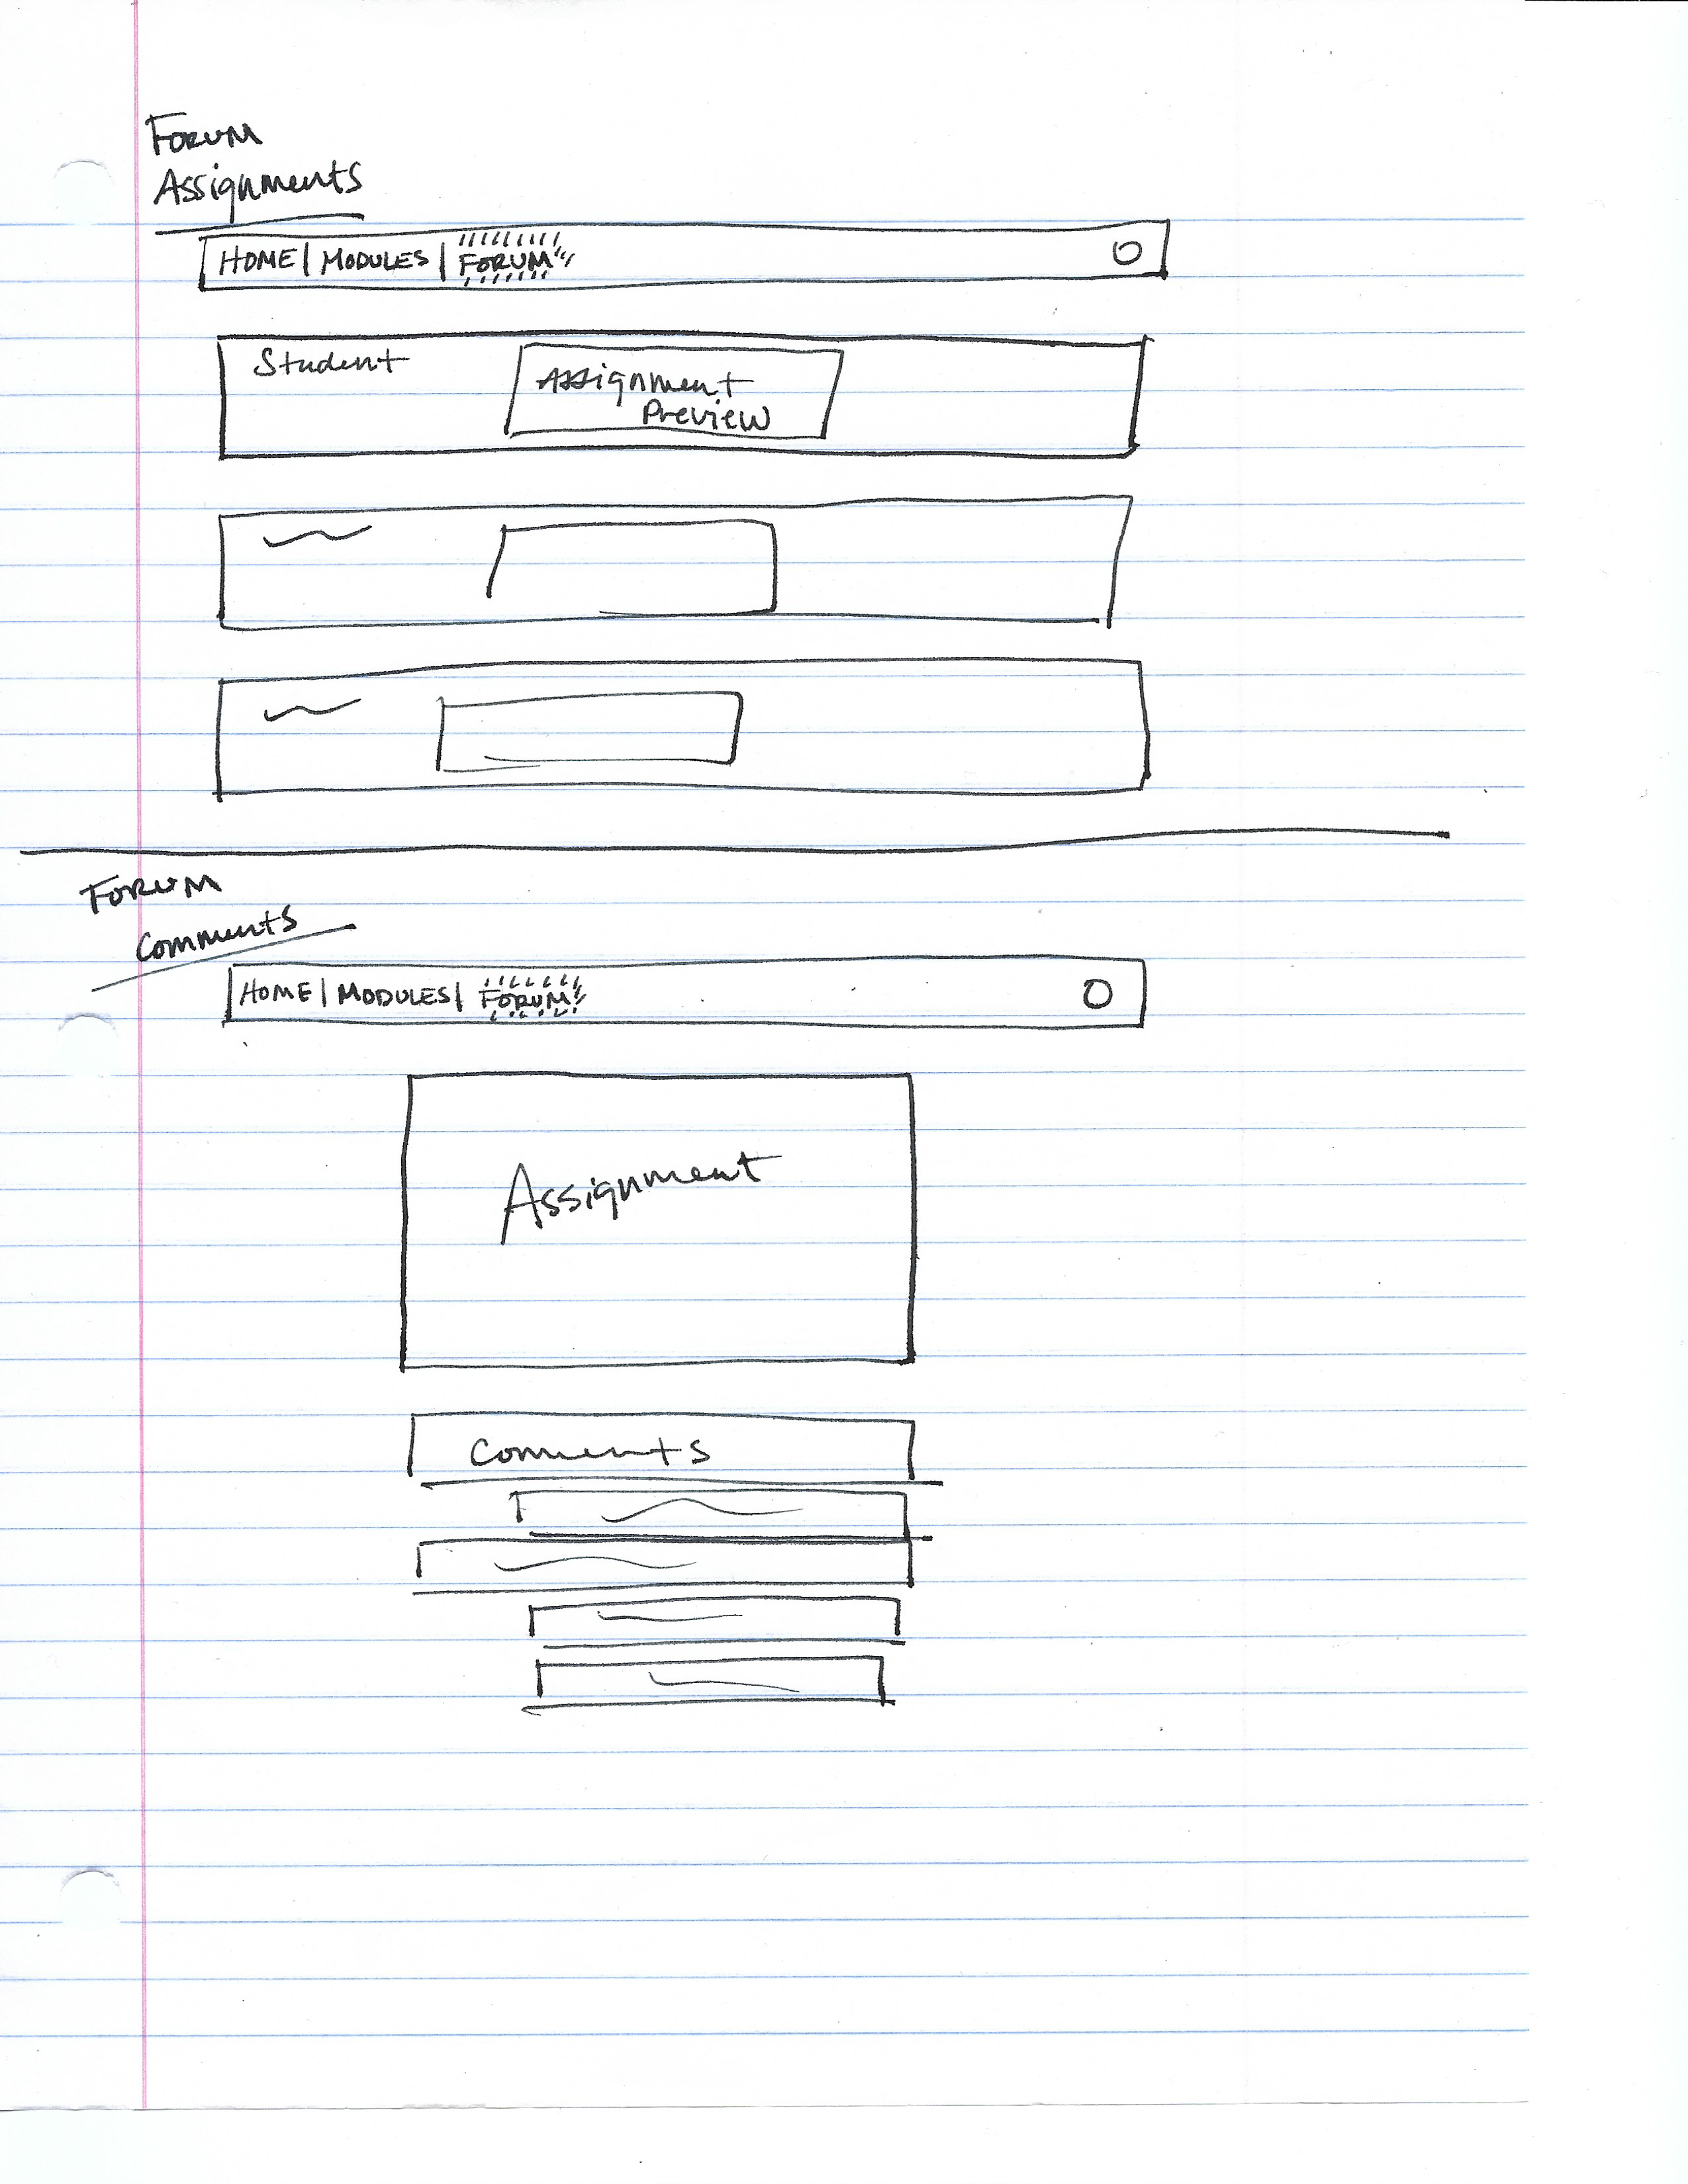 FORUM
Assignments
HOME | MODULES | FORUM
Student
Assignment
Preview
FORUM
Comments
HOME | MODULES | FORUM
Assignment
Comments